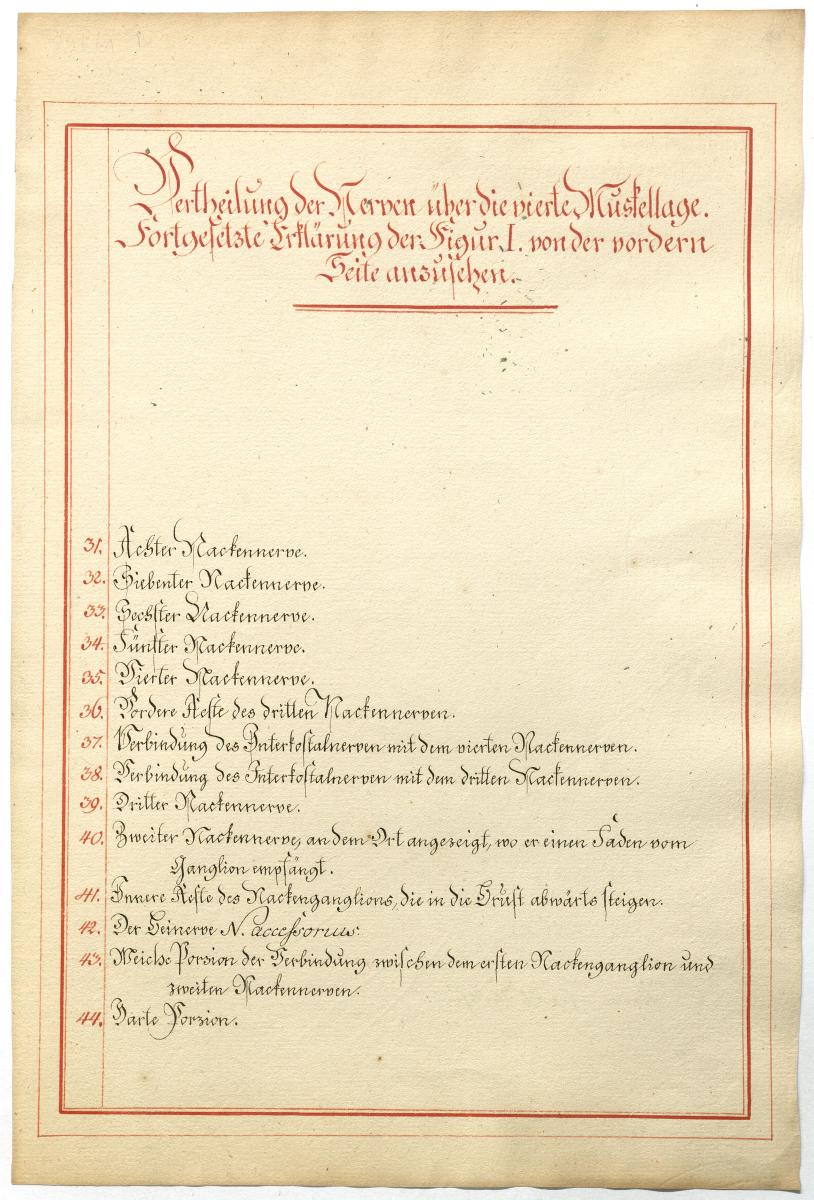 Vertheilung der Nerven über die vierte Muskellage.
Fortgesetzte Erklärung der Figur I. von der vordern
Seite anzusehen.
31. Achter Nackennerve.
32. Siebenter Nackennerve.
33. Sechster Nackennerve.
34. Fünfter Nackennerve.
35. Vierter Nackennerve.
36. Vordere Aeste des dritten Nackennerven.
37. Verbindung des Interkostalnerven mit dem vierten Nackennerven.
38. Verbindung des Interkostalnerven mit dem dritten Nackennerven.
39. Dritter Nackennerve.
40. Zweiter Nackennerve, an dem Ort angezeigt, wo er einen Faden vom
Ganglion empfängt.
41. Innere Aeste des Nackenganglions, die in die Brust abwärts steigen.
42. Der Beinerve N. accessorius.
43. Weiche Porzion der Verbindung zwischen dem ersten Nackenganglion und
zweiten Nackennerven.
44. Harte Porzion.